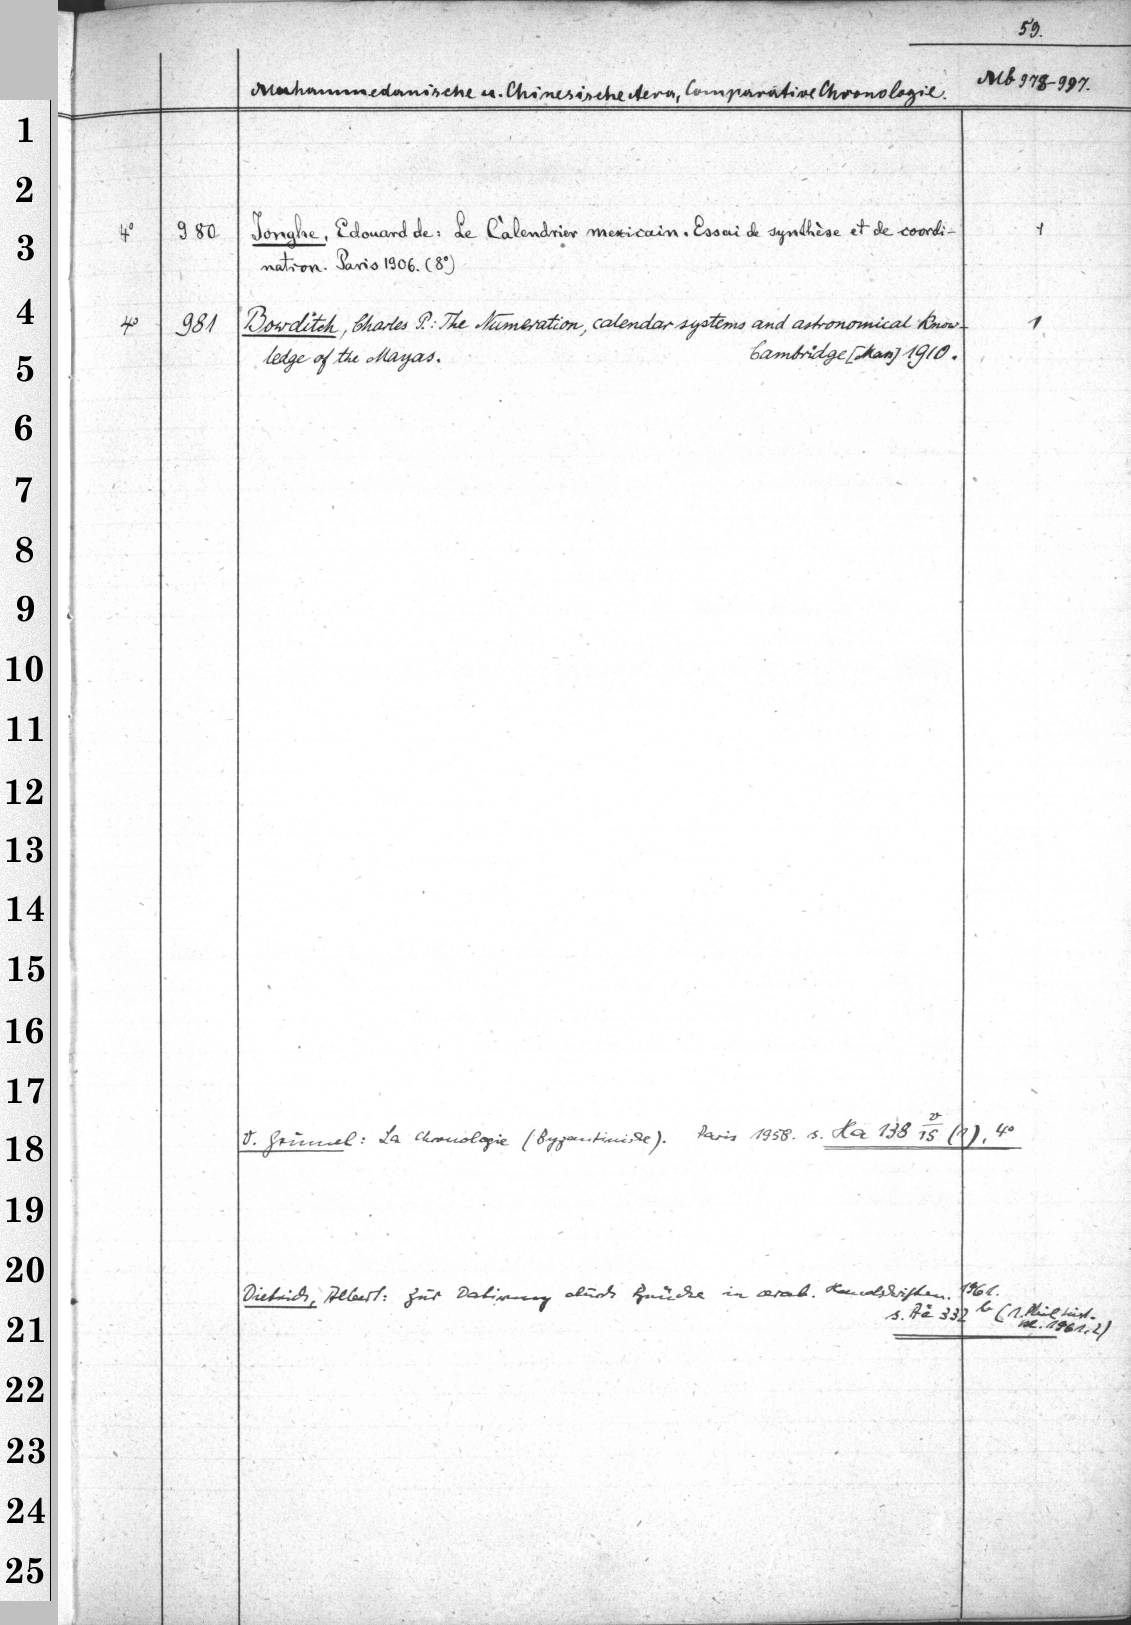 59.
Mohammedanische u. Chinesische Aera, Comparative Chronologie. Mb 978-997.
1
2
3
4° 980 Jonghe, Edouard de: Le Calendrier mexicain. Essai de synthèse et de coordi- 1
nation. Paris 1906. (8°)
4
4° 981 Bowditch, Charles P.: The Numeration, calendar systems and astronomical know- 1
ledge of the Mayas. Cambridge [Mass] 1910.
5
6
7
8
9
10
11
12
13
14
15
16
17
18
V. Grumel: La Chronologie (Byzantinische). Paris 1958. s. Ha 138 v/15 (1), 4°
19
20
Dietrich, Albert: Zur Datierung durch Brüche in arab. Handschriften. 1961.
s. Aa 332 b (1. Phil. hist.
Kl. 1961,2)
21
22
23
24
25